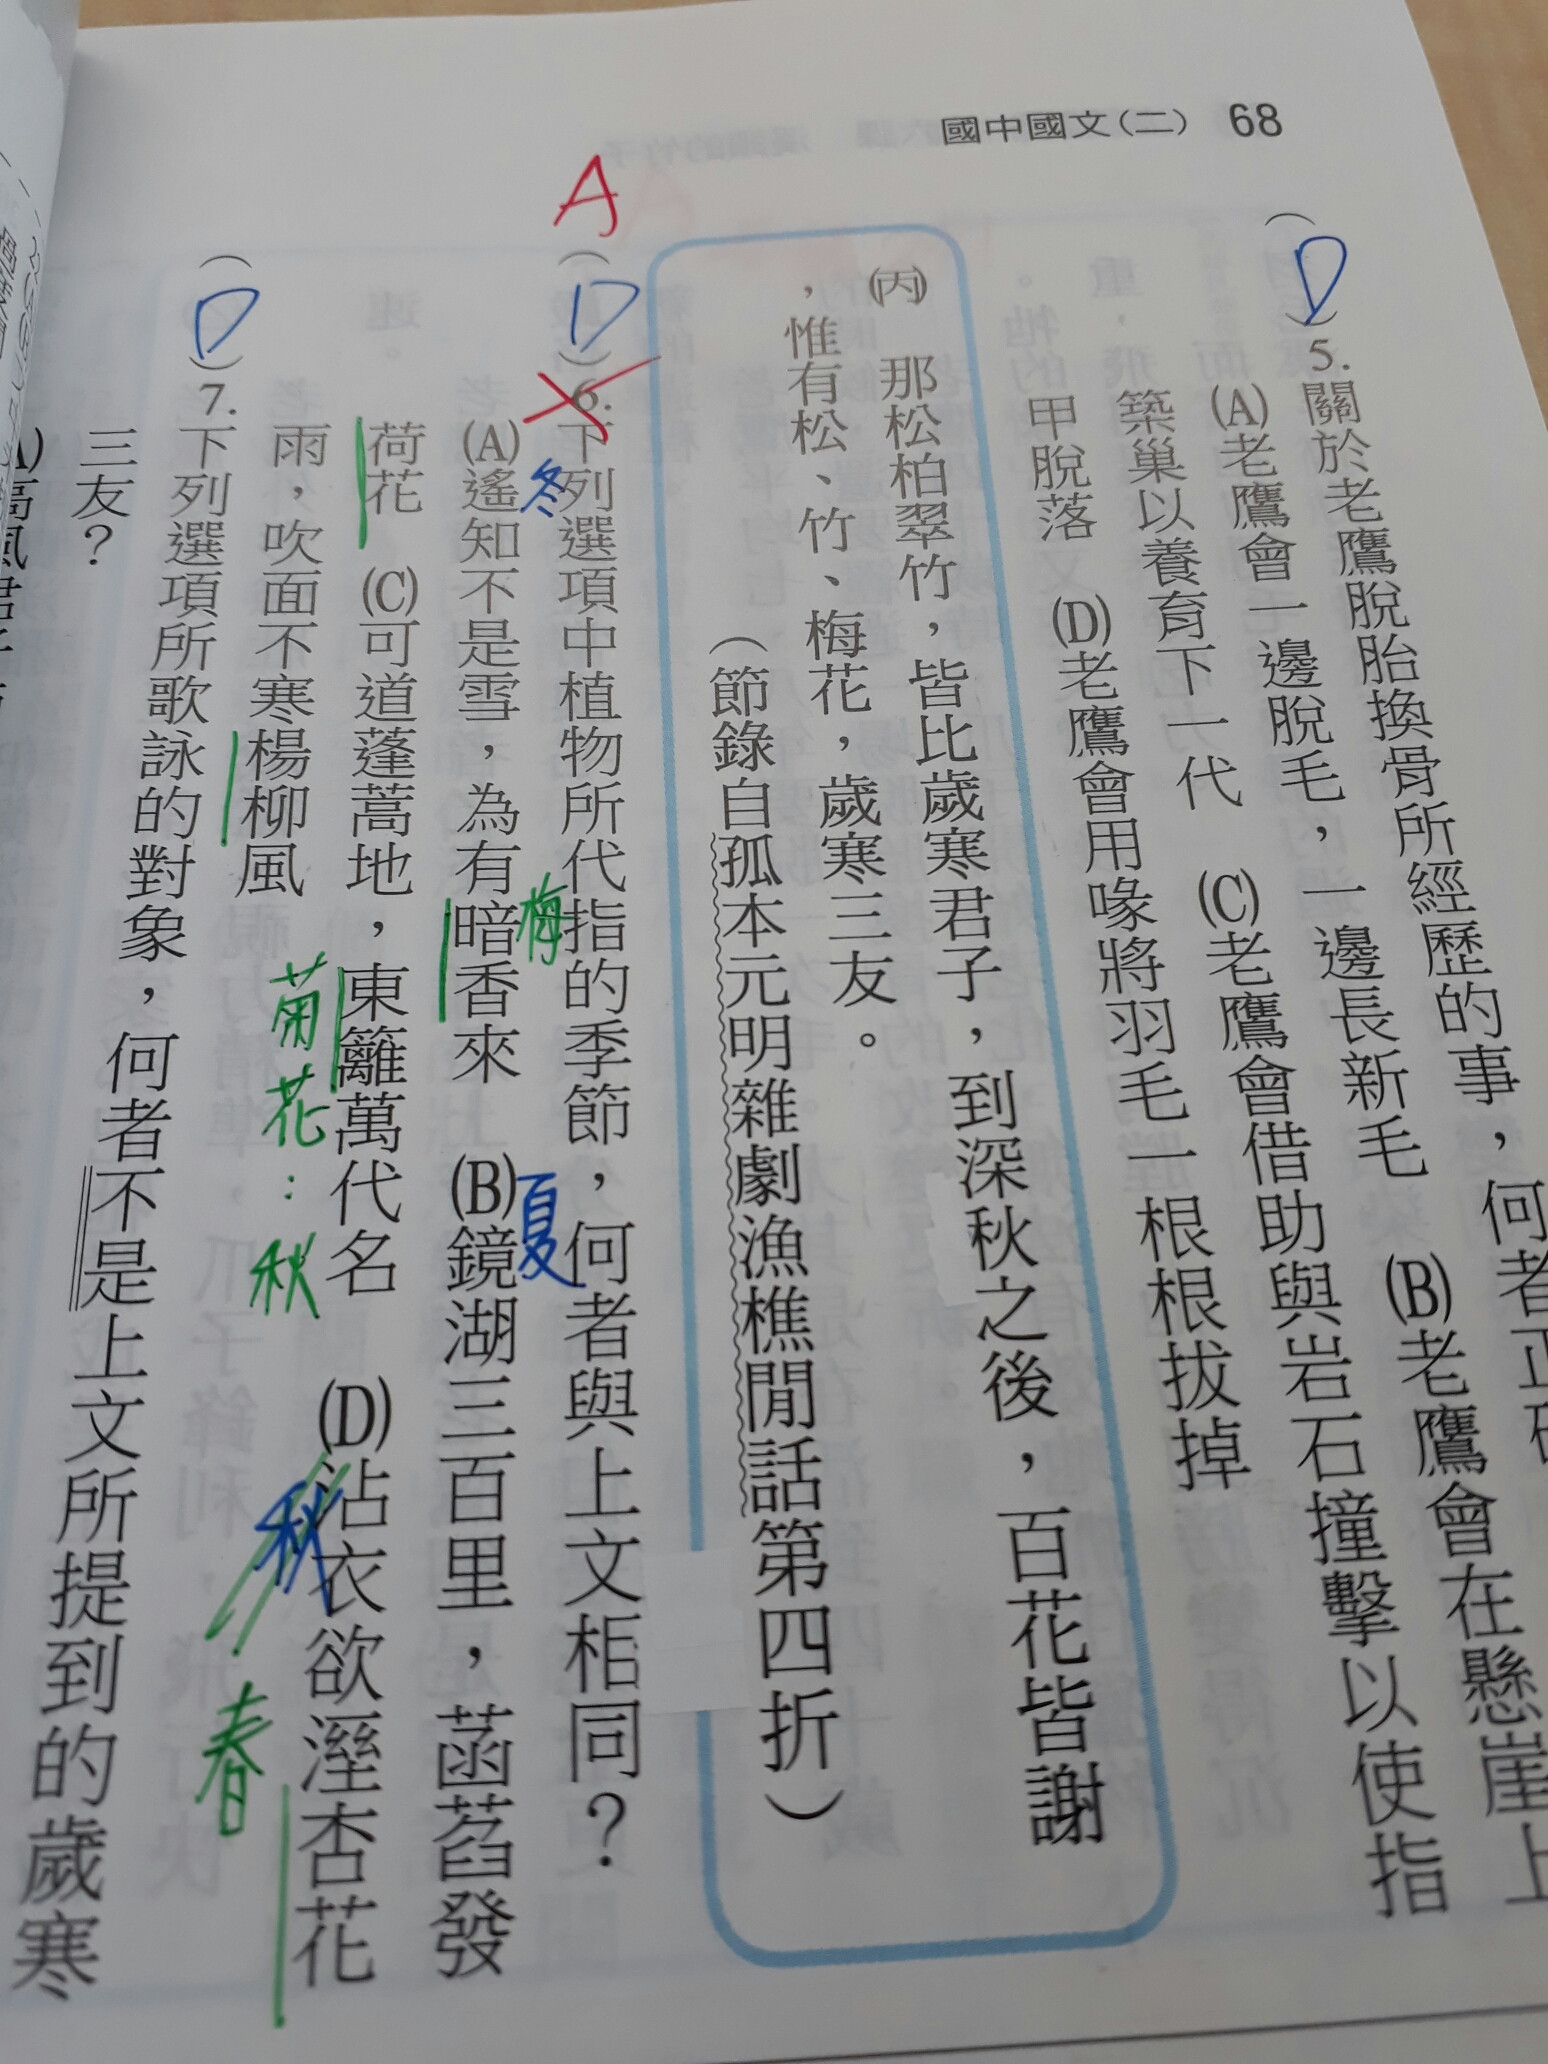 國中國文(二) 68
(D)5.關於老鷹脫胎換骨所經歷的事,何者正
(A)老鷹會一邊脫毛,一邊長新毛 (B)老鷹會在懸崖上
築巢以養育下一代 (C)老鷹會借助與岩石撞擊以使指
甲脫落 (D)老鷹會用喙將羽毛一根根拔掉
(丙) 那松柏翠竹,皆比歲寒君子,到深秋之後,百花皆謝
,惟有松、竹、梅花,歲寒三友。
(節錄自孤本元明雜劇漁樵閒話第四折)
A
(D)6.下列選項中植物所代指的季節,何者與上文相同?
冬
梅
夏
(A)遙知不是雪,為有暗香來 (B)鏡湖三百里,菡萏發
荷花 (C)可道蓬蒿地,東籬萬代名 (D)沾衣欲溼杏花
菊花:秋
秋
春
雨,吹面不寒楊柳風
(D)7.下列選項所歌詠的對象,何者不是上文所提到的歲寒
三友?